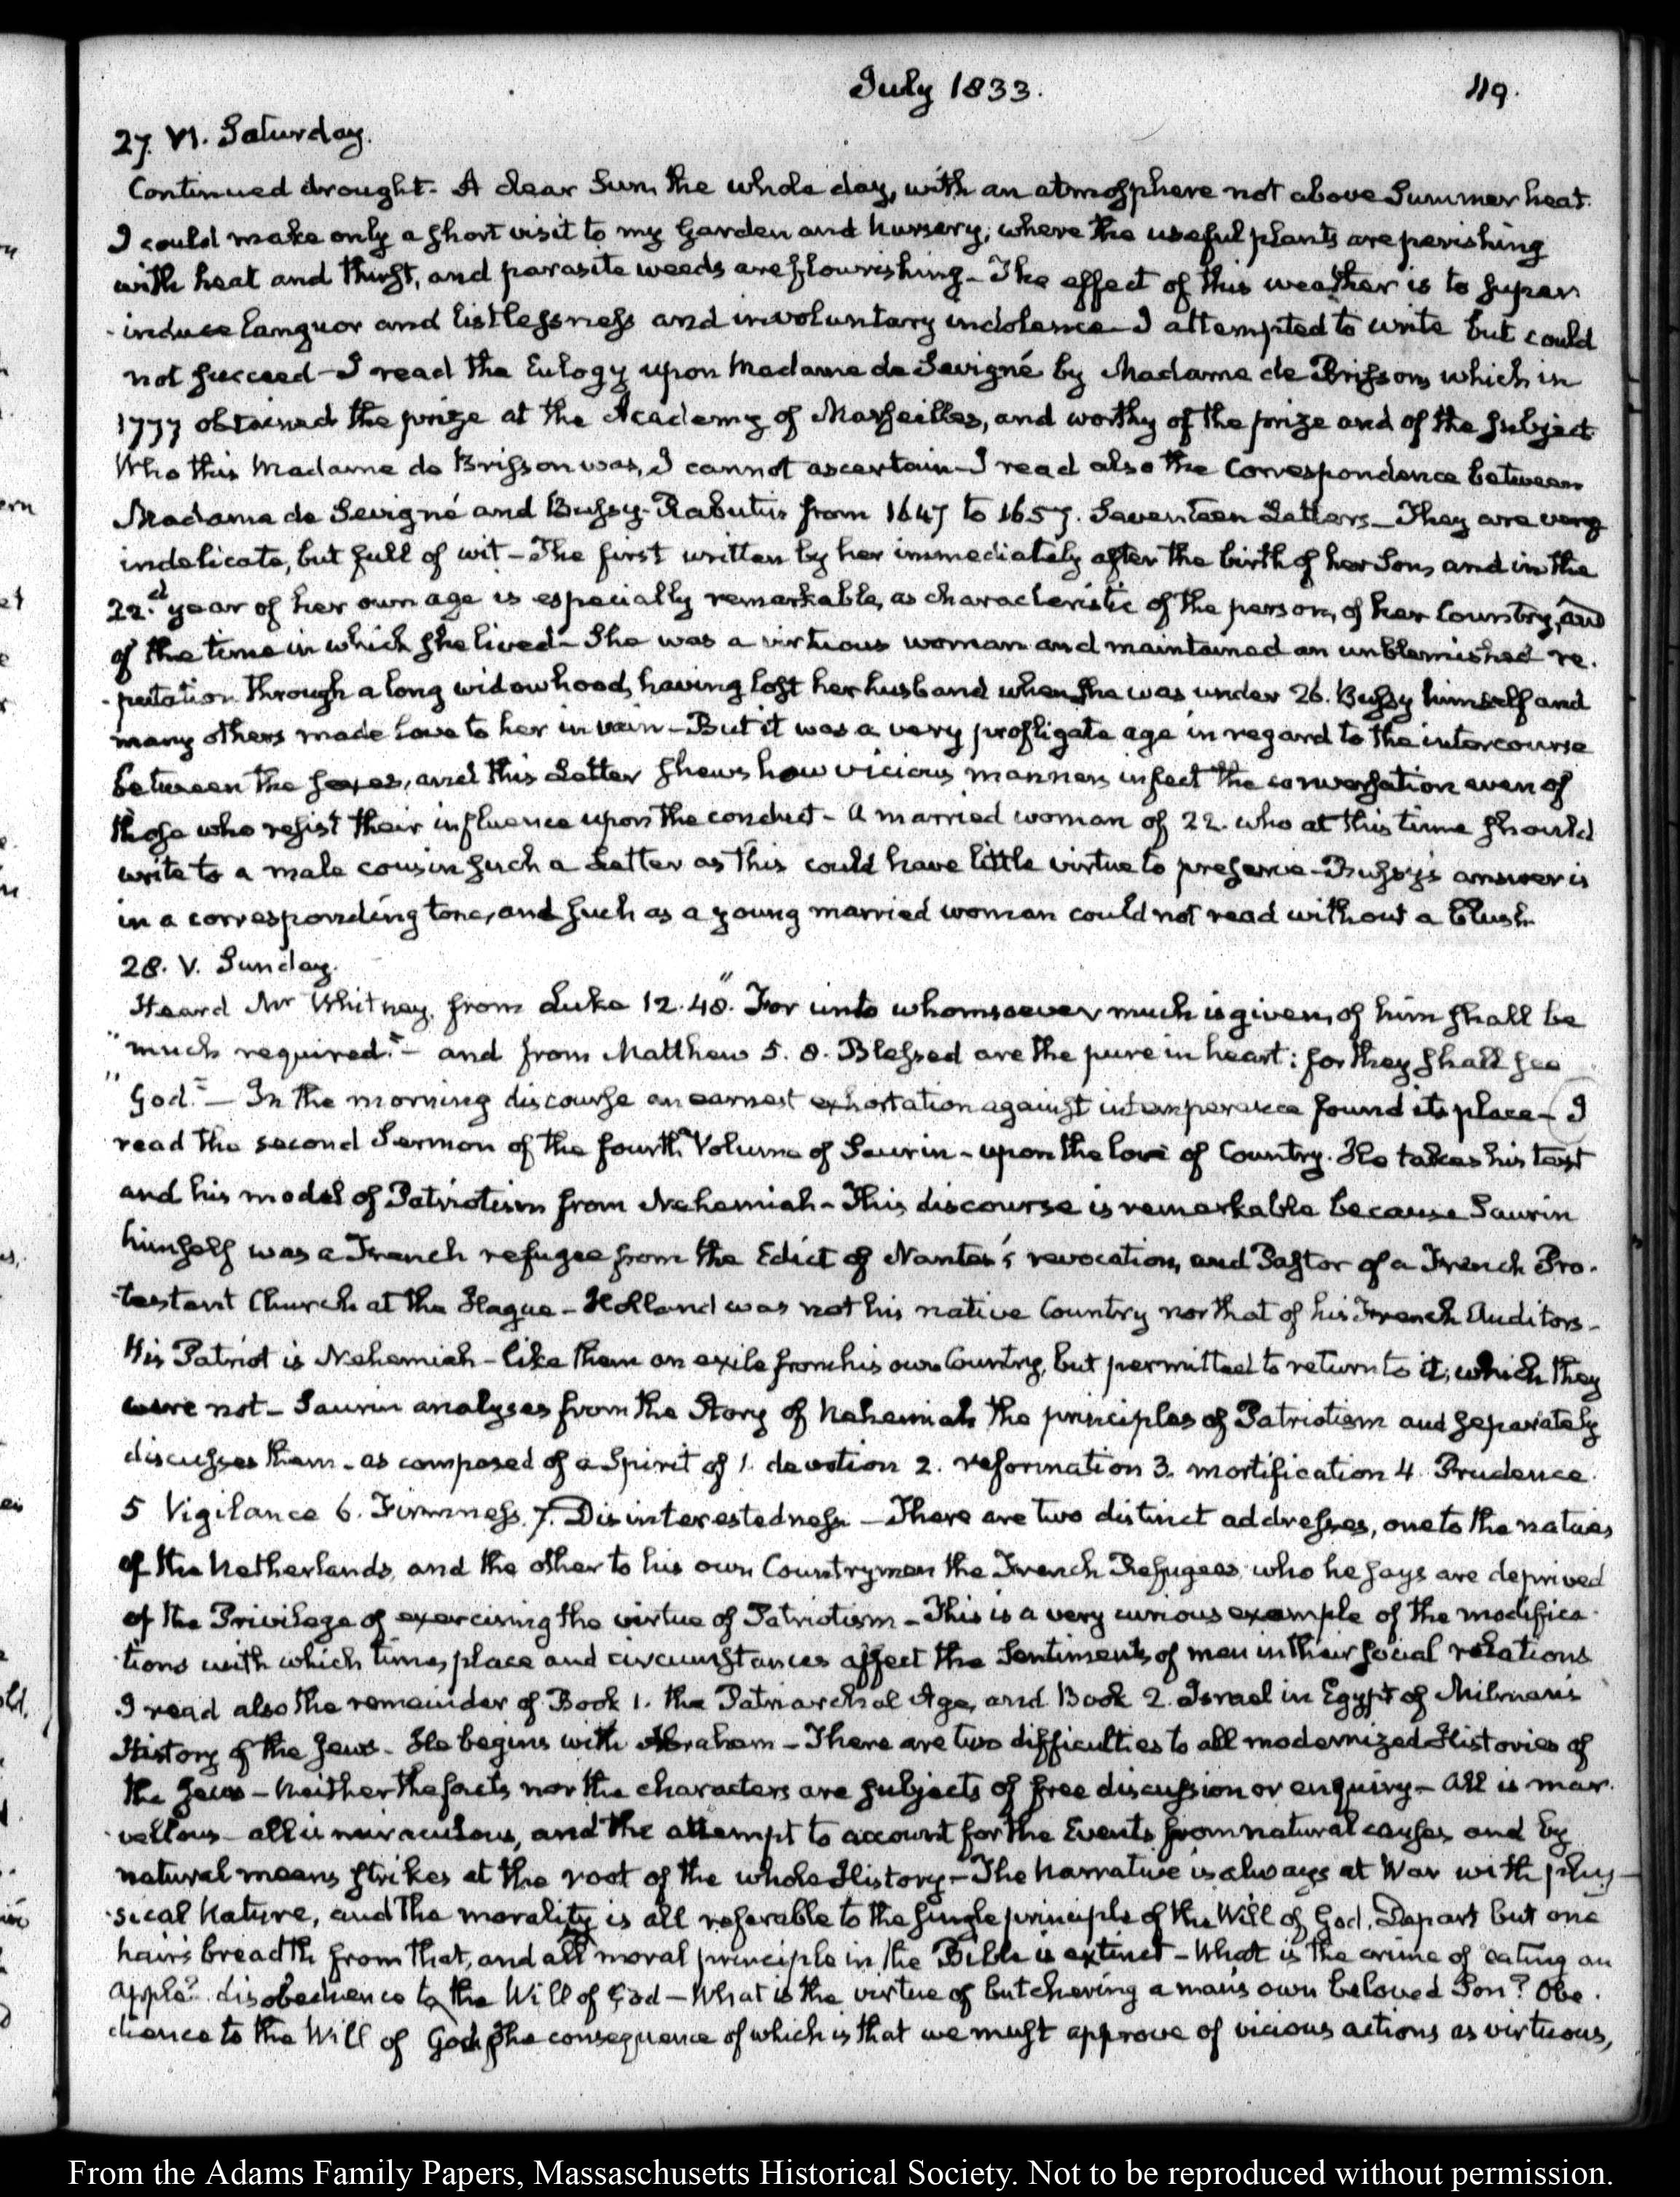 July 1833.
119.
27. VI. Saturday.
Continued drought. A clear Sun, the whole day, with an atmosphere not above Summer heat.
I could make only a short visit to my Garden and Nursery, where the useful plants are perishing
with heat and thirst, and parasite weeds are flourishing - The effect of this weather is to super
-induce languor and listlessness and involuntary indolence - I attempted to write but could
not succeed - I read the Eulogy upon Madame de Sevigné by Madame de Brisson, which in
1777 obtained the prize at the Academy of Marseilles, and worthy of the prize and of the subject.
Who this Madame de Brisson was, I cannot ascertain - I read also the Correspondence between
Madame de Sevigné and Bussy-Rabutin from 1647 to 1657. Seventeen Letters - They are very
indelicate, but full of wit - The first written by her immediately after the birth of her Son, and in the
22.d year of her own age is especially remarkable, as characteristic of the person, of her Country, and
of the time in which she lived - She was a virtuous woman and maintained an unblemished re.
-putation through a long widowhood, having lost her husband when she was under 26. Bussy himself and
many others made love to her in vain - But it was a very profligate age in regard to the intercourse
between the sexes, and this Letter shews how vicious manners infect the conversation even of
those who resist their influence upon the conduct - A married woman of 22. who at this time should
write to a male cousin such a Letter as this could have little virtue to preserve - Bussy's answer is
in a corresponding tone, and such as a young married woman could not read without a blush.
28. V. Sunday.
Heard Mr Whitney, from Luke 12. 48. "For unto whomsoever much is given, of him shall be
"much required." - and from Matthew 5. 8. Blessed are the pure in heart: for they shall see
"God." - In the morning discourse an earnest exhortation against intemperance found its place - I
read the second Sermon of the fourth Volume of Saurin - upon the love of Country. He takes his text
and his model of Patriotism from Nehemiah - This discourse is remarkable because Saurin
himself was a French refugee from the Edict of Nantes's revocation, and Pastor of a French Pro.
-testant Church at the Hague - Holland was not his native Country nor that of his French Auditors -
His Patriot is Nehemiah - like them an exile from his own Country, but permitted to return to it, which they
were not - Saurin analyses from the Story of Nehemiah the principles of Patriotism and separately
discusses them - as composed of a Spirit of 1. devotion 2. reformation 3. mortification 4. Prudence.
5 Vigilance 6. Firmness. 7. Disinterestedness - There are two distinct addresses, one to the natives
of the Netherlands, and the other to his own Countrymen the French Refugees, who he says are deprived
of the Privilege of exercising the virtue of Patriotism - This is a very curious example of the modifica-
-tions with which time, place and circumstances affect the Sentiments of men in their social relations
I read also the remainder of Book 1. the Patriarchal Age, and Book 2. Israel in Egypt of Milman's
History of the Jews - He begins with Abraham - There are two difficulties to all modernized Histories of
the Jews - Neither the facts nor the characters are subjects of free discussion or enquiry - All is mar.
-vellous - all is miraculous, and the attempt to account for the Events from natural causes and by
natural means strikes at the root of the whole History - The Narrative is always at War with phy-
-sical Nature, and the morality is all referable to the single principle of the Will of God. Depart but one
hair's breadth from that, and all moral principle in the Bible is extinct - What is the crime of eating an
apple? disobedience to the Will of God - What is the virtue of butchering a man's own beloved Son? Obe.
dience to the Will of God. The consequence of which is that we must approve of vicious actions as virtuous,
From the Adams Family Papers, Massachusetts Historical Society. Not to be reproduced without permission.